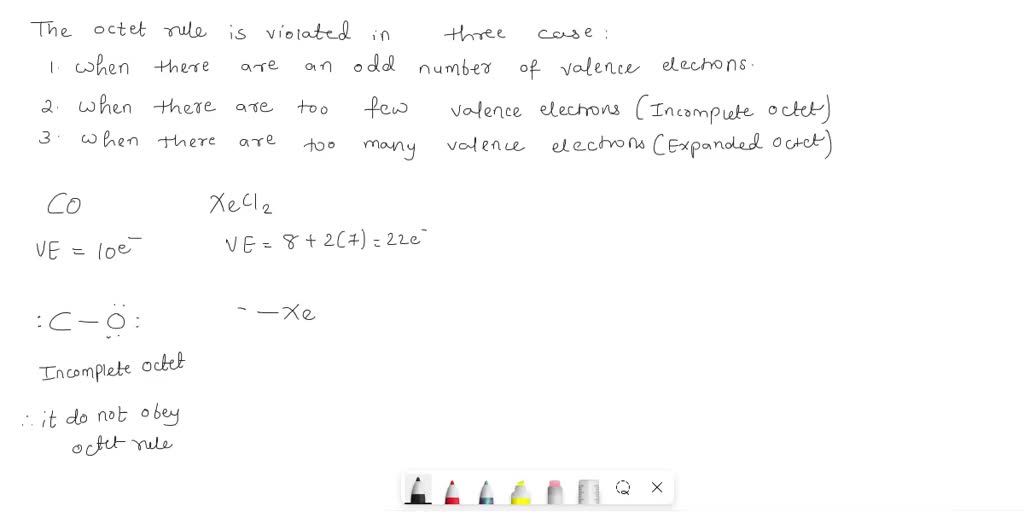 The octet rule is violated in three case:
1. when there are an odd number of valence electrons.
2. when there are too few valence electrons (Incomplete octet)
3. when there are too many valence electrons (Expanded octet)
CO XeCl2
VE = 10e⁻ VE = 8 + 2(7) = 22e⁻
:C – Ö: – Xe
Incomplete octet
∴ it do not obey
octet rule